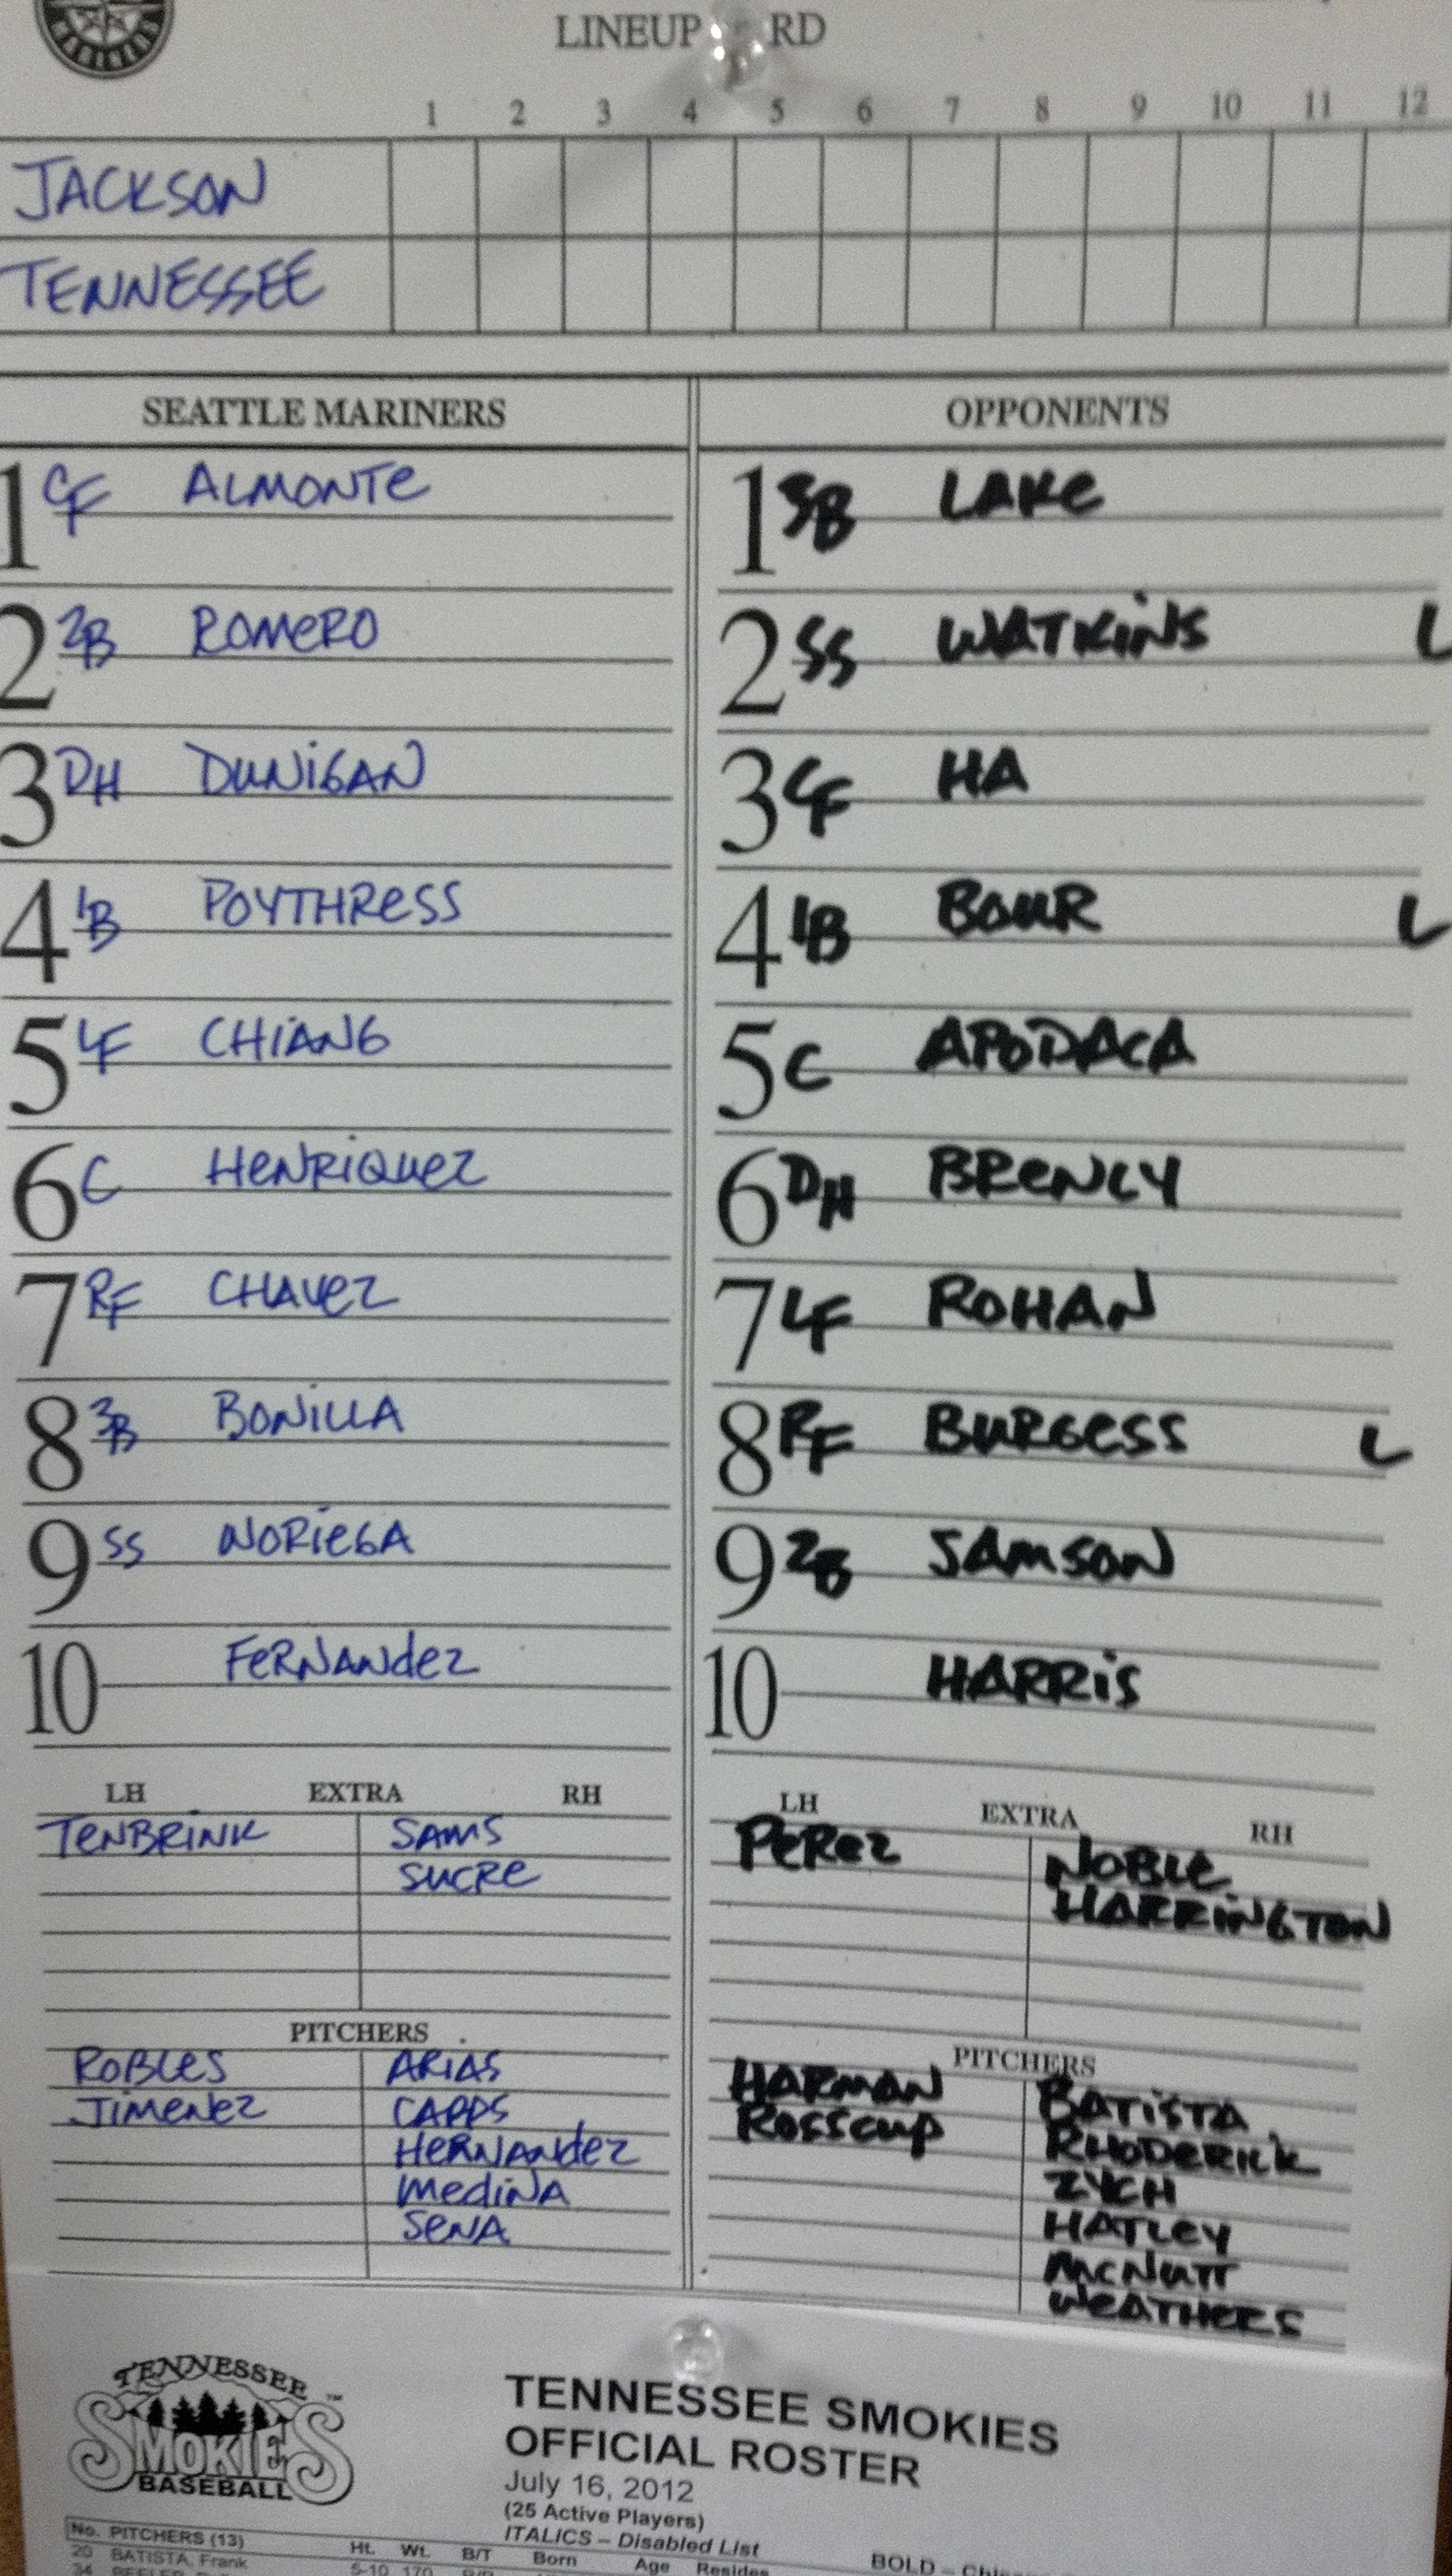 MARINERS
LINEUP RD
1 2 3 4 5 6 7 8 9 10 11 12
JACKSON
TENNESSEE
SEATTLE MARINERS
1 CF ALMONTE
2 2B ROMERO
3 DH DUNIGAN
4 1B POYTHRESS
5 LF CHIANG
6 C HENRIQUEZ
7 RF CHAVEZ
8 3B BONILLA
9 SS NORIEGA
10 FERNANdEZ
LH EXTRA RH
TENBRINK SAMS
SUCRE
PITCHERS
ROBLES ARIAS
JIMENEZ CAPPS
HERNANdEZ
MEdINA
SENA
OPPONENTS
1 3B LAKE
2 SS WATKINS L
3 CF HA
4 1B BOUR L
5 C APODACA
6 DH BRENLY
7 LF ROHAN
8 RF BURGESS L
9 2B SAMSON
10 HARRIS
LH EXTRA RH
PEREZ NOBLE
HARRINGTON
PITCHERS
HARMAN BATISTA
ROSSCUP RHODERICK
ZYCH
HATLEY
McNUTT
WEATHERS
TENNESSEE
SMOKIES
BASEBALL
TENNESSEE SMOKIES
OFFICIAL ROSTER
July 16, 2012
(25 Active Players)
ITALICS – Disabled List
BOLD –
No. PITCHERS (13) Ht. Wt. B/T Born Age Resides
20 BATISTA, Frank 5-10 170
34